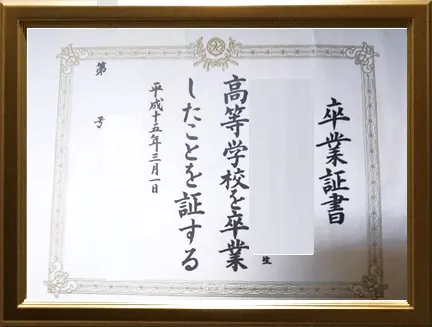 卒業証書
生
高等学校を卒業
したことを証する
平成十五年三月一日
第　号